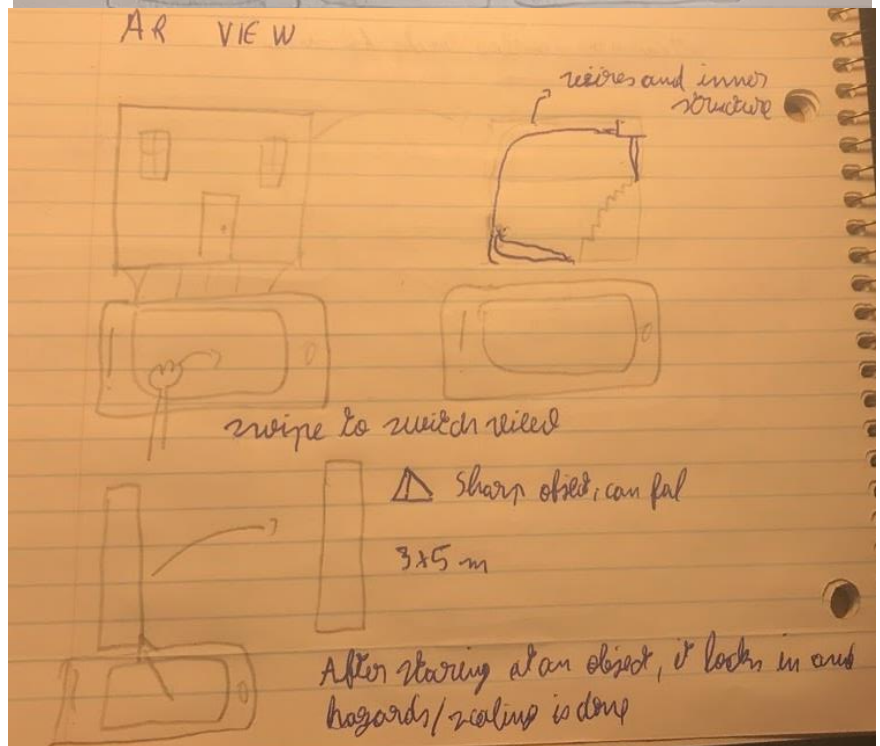 AR VIEW
wires and inner
structure
swipe to switch view
⚠ Sharp object, can fal
3x5 m
After staring at an object, it locks in and
hazards/scaling is done